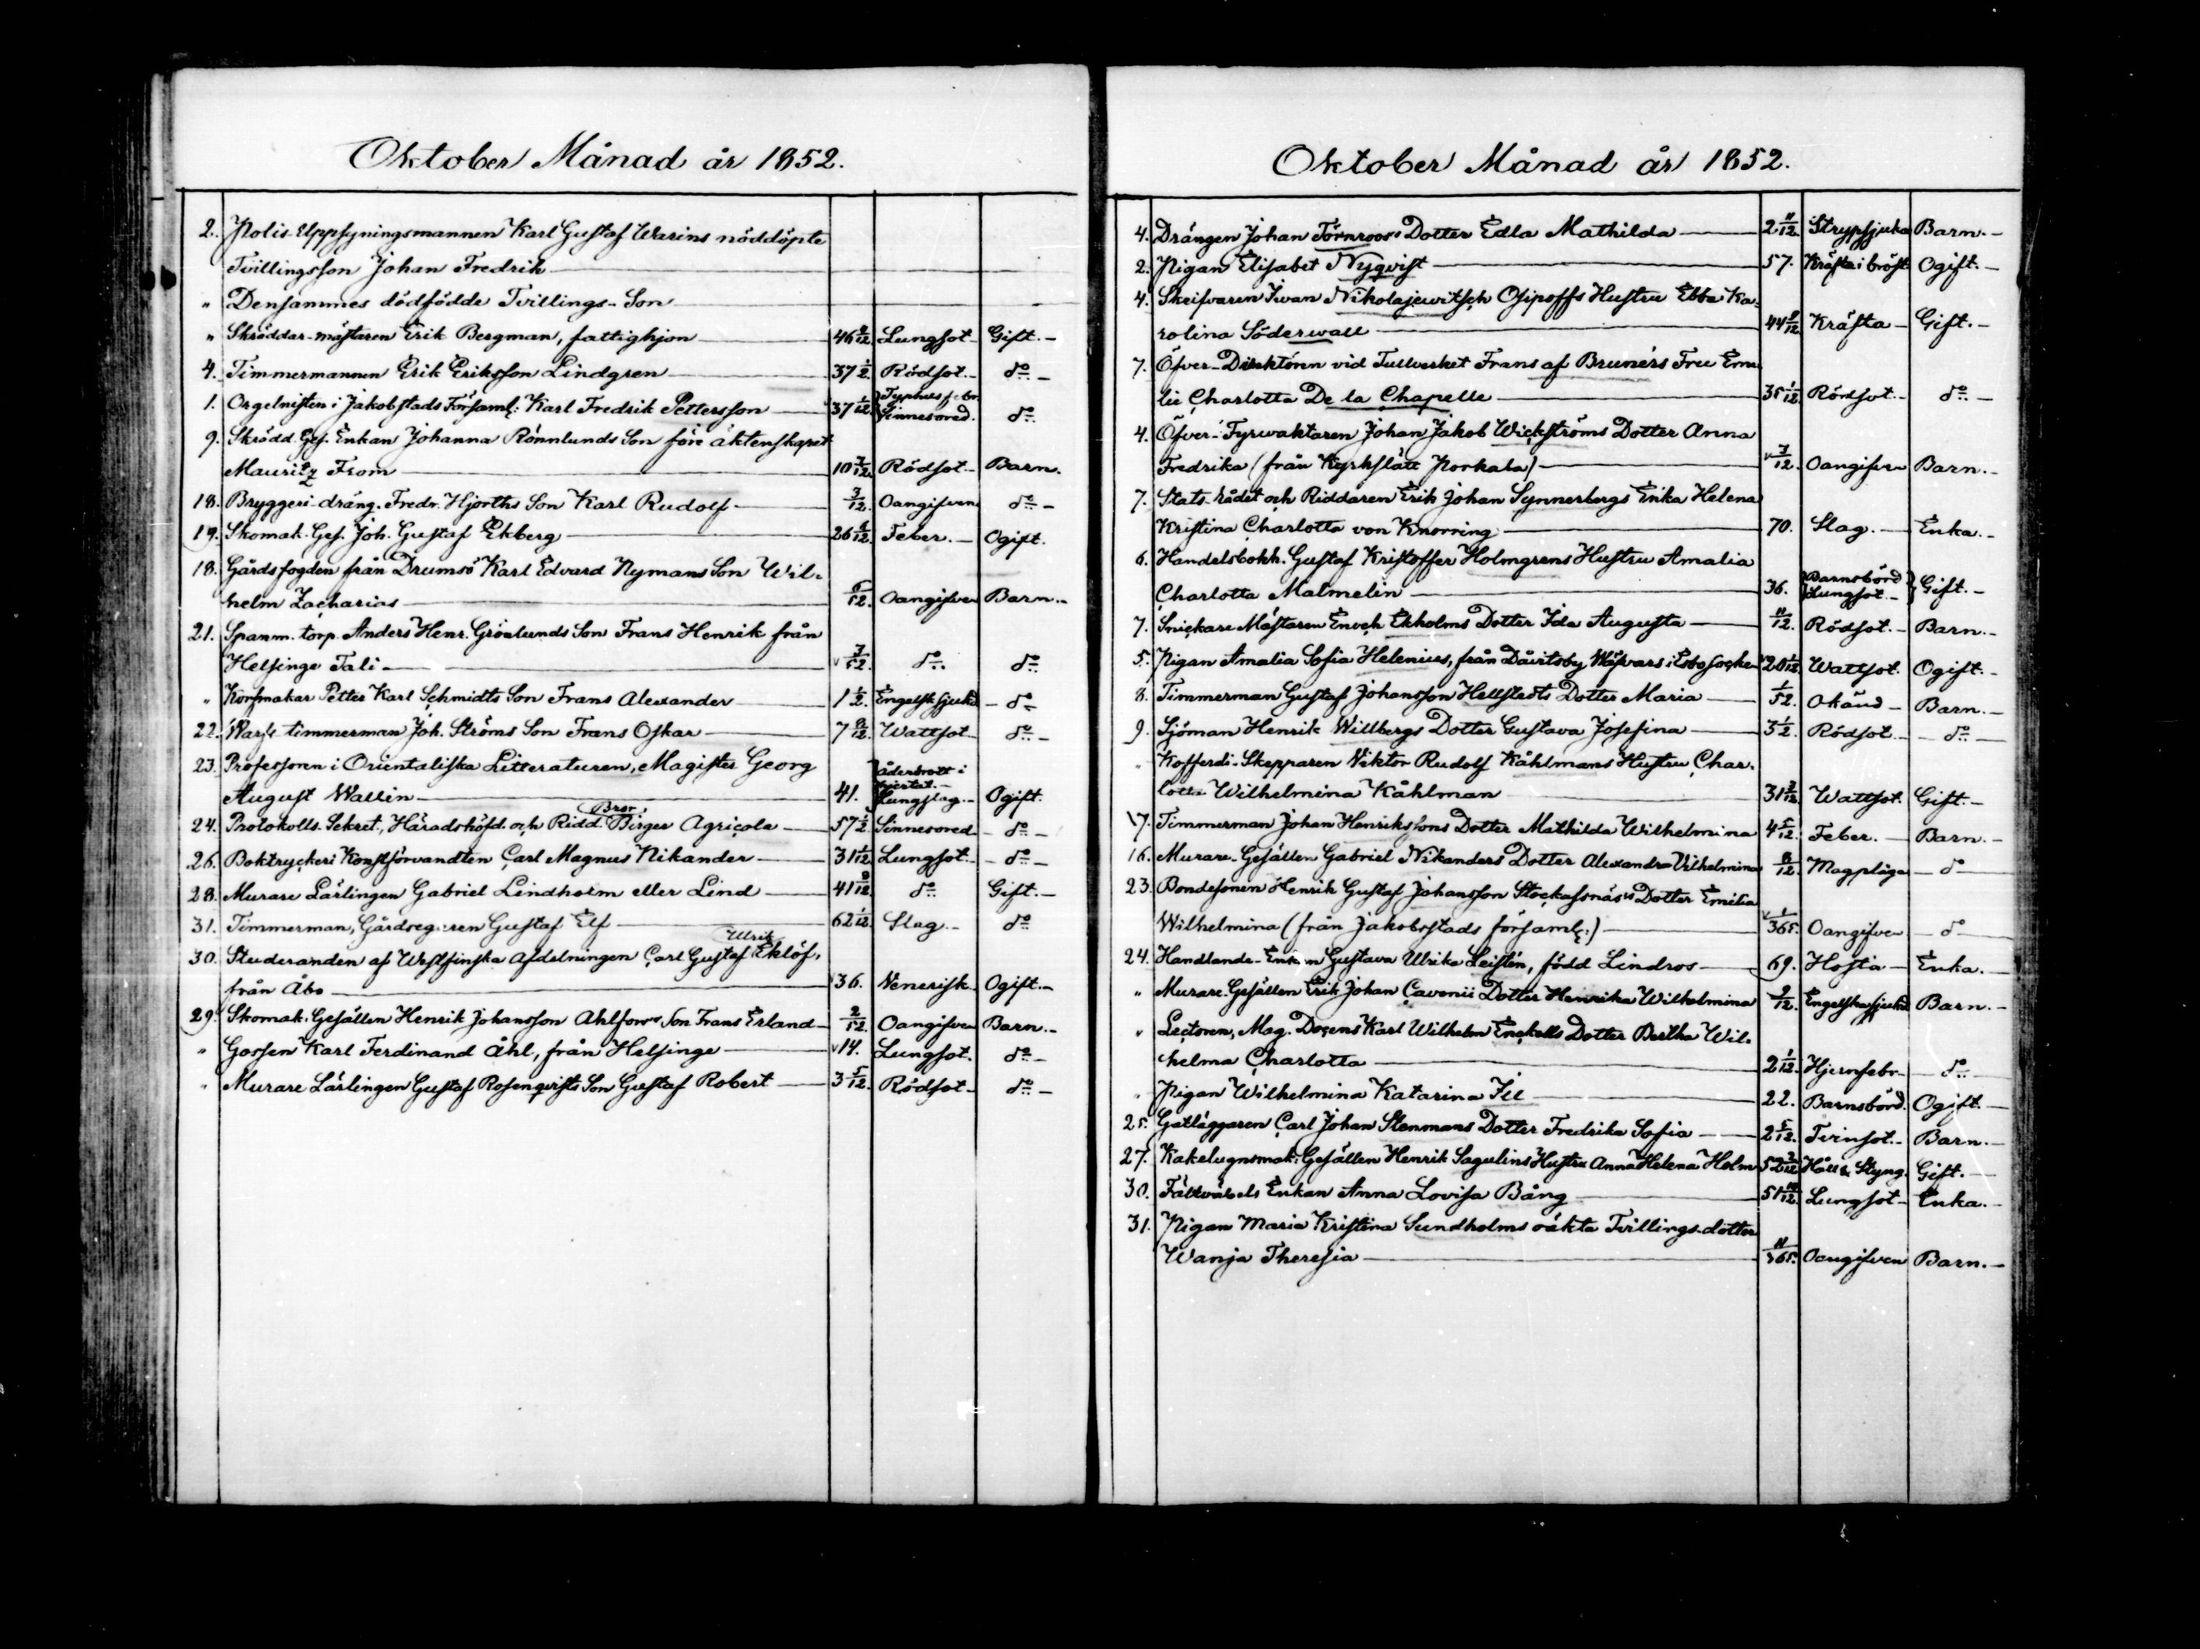 Oktober Månad år 1852.
2. Polis-Uppsyningsmannen Karl Gustaf Warins nöddöpte
Tvillingsson Johan Fredrik
" Densammes dödfödde Tvillings-Son
" Skräddar-mästaren Erik Bergman, fattighjon 46 /12. Lungsot Gift.
4. Timmermannen Erik Eriksson Lindgren 37 1/2. Rödsot do
1. Orgelnisten i Jakobstads Församl: Karl Fredrik Pettersson 37 1/12. Typhus febr. Sinnesored. do
9. Skrädd. Ges. Enkan Johanna Rönnlunds Son före äktenskapet
Mauritz From 10 7/12. Rödsot Barn.
18. Bryggeri-dräng. Fredr. Hjorths Son Karl Rudolf 7/12. Oangifven do
19. Skomak. Ges. Joh. Gustaf Ekberg 26 /12. Feber. Ogift.
18. Gårdsfogden från Drumsö Karl Edvard Nymans Son Wil-
helm Zacharias 6/52. Oangifven Barn.
21. Spanm. torp. Anders Henr. Grönlunds Son Frans Henrik från
Helsinge Tali 3/52. do do
" Korfmakar Petter Karl Schmidts Son Frans Alexander 1 1/2. Engelsk sjuka do
22. Warfs timmerman Joh. Ströms Son Frans Oskar 7 8/12. Wattsot do
23. Professoren i Orientaliska Litteraturen, Magister Georg
August Wallin 41. Åderbrott i hjertat. Lungslag. Ogift.
24. Protokolls Sekret., Häradshöfd. och Ridd. Bror Birger Agricola 57 1/2 Sinnesored do
26. Boktryckeri Konstförvandten Carl Magnus Nikander 31 1/12 Lungsot do
28. Murare Lärlingen Gabriel Lindholm eller Lind 41 9/12. do Gift.
31. Timmerman, Gårdsegaren Gustaf Elf 62 1/12. Slag do
30. Studeranden af Westfinska afdelningen Carl Gustaf Ulrik Eklöf,
från Åbo 36. Venerisk Ogift.
29. Skomak. Gesällen Henrik Johansson Ahlfors Son Frans Erland 2/52. Oangifven Barn.
" Gossen Karl Ferdinand Åhl, från Helsinge 14. Lungsot. do
" Murare Lärlingen Gustaf Rosenqvists Son Gustaf Robert 3 5/12. Rödsot do
Oktober Månad år 1852.
4. Drängen Johan Törnroos's Dotter Edla Mathilda 2 11/12. Strypsjuka Barn.
2. Pigan Elisabet Nyqvist 57. Kräfta i bröst. Ogift.
4. Skrifvaren Iwan Nikolajewitsch Osipoffs Hustru Ebba Ka-
rolina Söderwall 44 9/12 Kräfta Gift.
7. Öfver-Direktören vid Tullverket Frans af Brunérs Fru Emi-
lie Charlotta De la Chapelle 35 1/12. Rödsot. do
4. Öfver-Fyrwaktaren Johan Jakob Wickströms Dotter Anna
Fredrika (från Kyrkslätt Porkala) 7/12. Oangifven Barn.
7. Stats-rådet och Riddaren Erik Johan Synnerbergs Enka Helena
Kristina Charlotta von Knorring 70. Slag. Enka.
6. Handelsbokh. Gustaf Kristoffer Holmgrens Hustru Amalia
Charlotta Malmelin 36. Barnsbörd Lungsot. Gift.
7. Snickare Mästaren Enoch Ekholms Dotter Ida Augusta 11/12. Rödsot. Barn.
5. Pigan Amalia Sofia Helenius, från Dåvitsby i Esbo socken 20 1/12 Wattsot. Ogift.
8. Timmerman Gustaf Johansson Hellstedts Dotter Maria 1/52. Okänd Barn.
9. Sjöman Henrik Willbergs Dotter Gustava Josefina 3 1/2. Rödsot do
" Kofferdi-Skepparen Viktor Rudolf Kåhlmans Hustru Char-
lotta Wilhelmina Kåhlman 31 3/12. Wattsot. Gift.
7. Timmerman Johan Henrikssons Dotter Mathilda Wilhelmina 4 5/12. Feber. Barn.
16. Murare-Gesällen Gabriel Nikanders Dotter Alexandra Vilhelmina 8/12. Magplåga do
23. Bondesonen Henrik Gustaf Johansson Stockassnäs's Dotter Emilia
Wilhelmina (från Jakobstads församl:) 1/365. Oangifven do
24. Handlande-Enkan Gustava Ulrika Leistén, född Lindros 69. Hosta Enka.
" Murare-Gesällen Erik Johan Cavenii Dotter Henrika Wilhelmina 9/12. Engelska sjukd. Barn.
" Lectoren, Mag. Docens Karl Wilhelm Enckells Dotter Bertha Wil-
helma Charlotta 2 1/12. Hjernfebr. do
" Pigan Wilhelmina Katarina 22. Barnsbörd. Ogift.
25. Gatläggaren Carl Johan Stenmans Dotter Fredrika Sofia 2 5/12. Tvinsot. Barn.
27. Kakelugnsmak: Gesällen Henrik Sagulins Hustru Anna Helena Holm 52 /12 Håll & Styng. Gift.
30. Fältväbels Enkan Anna Lovisa Bång 51 10/12. Lungsot Enka.
31. Pigan Maria Kristina Sundholms oäkta Tvillings-dotter
Wanja Theresia 11/365. Oangifven Barn.